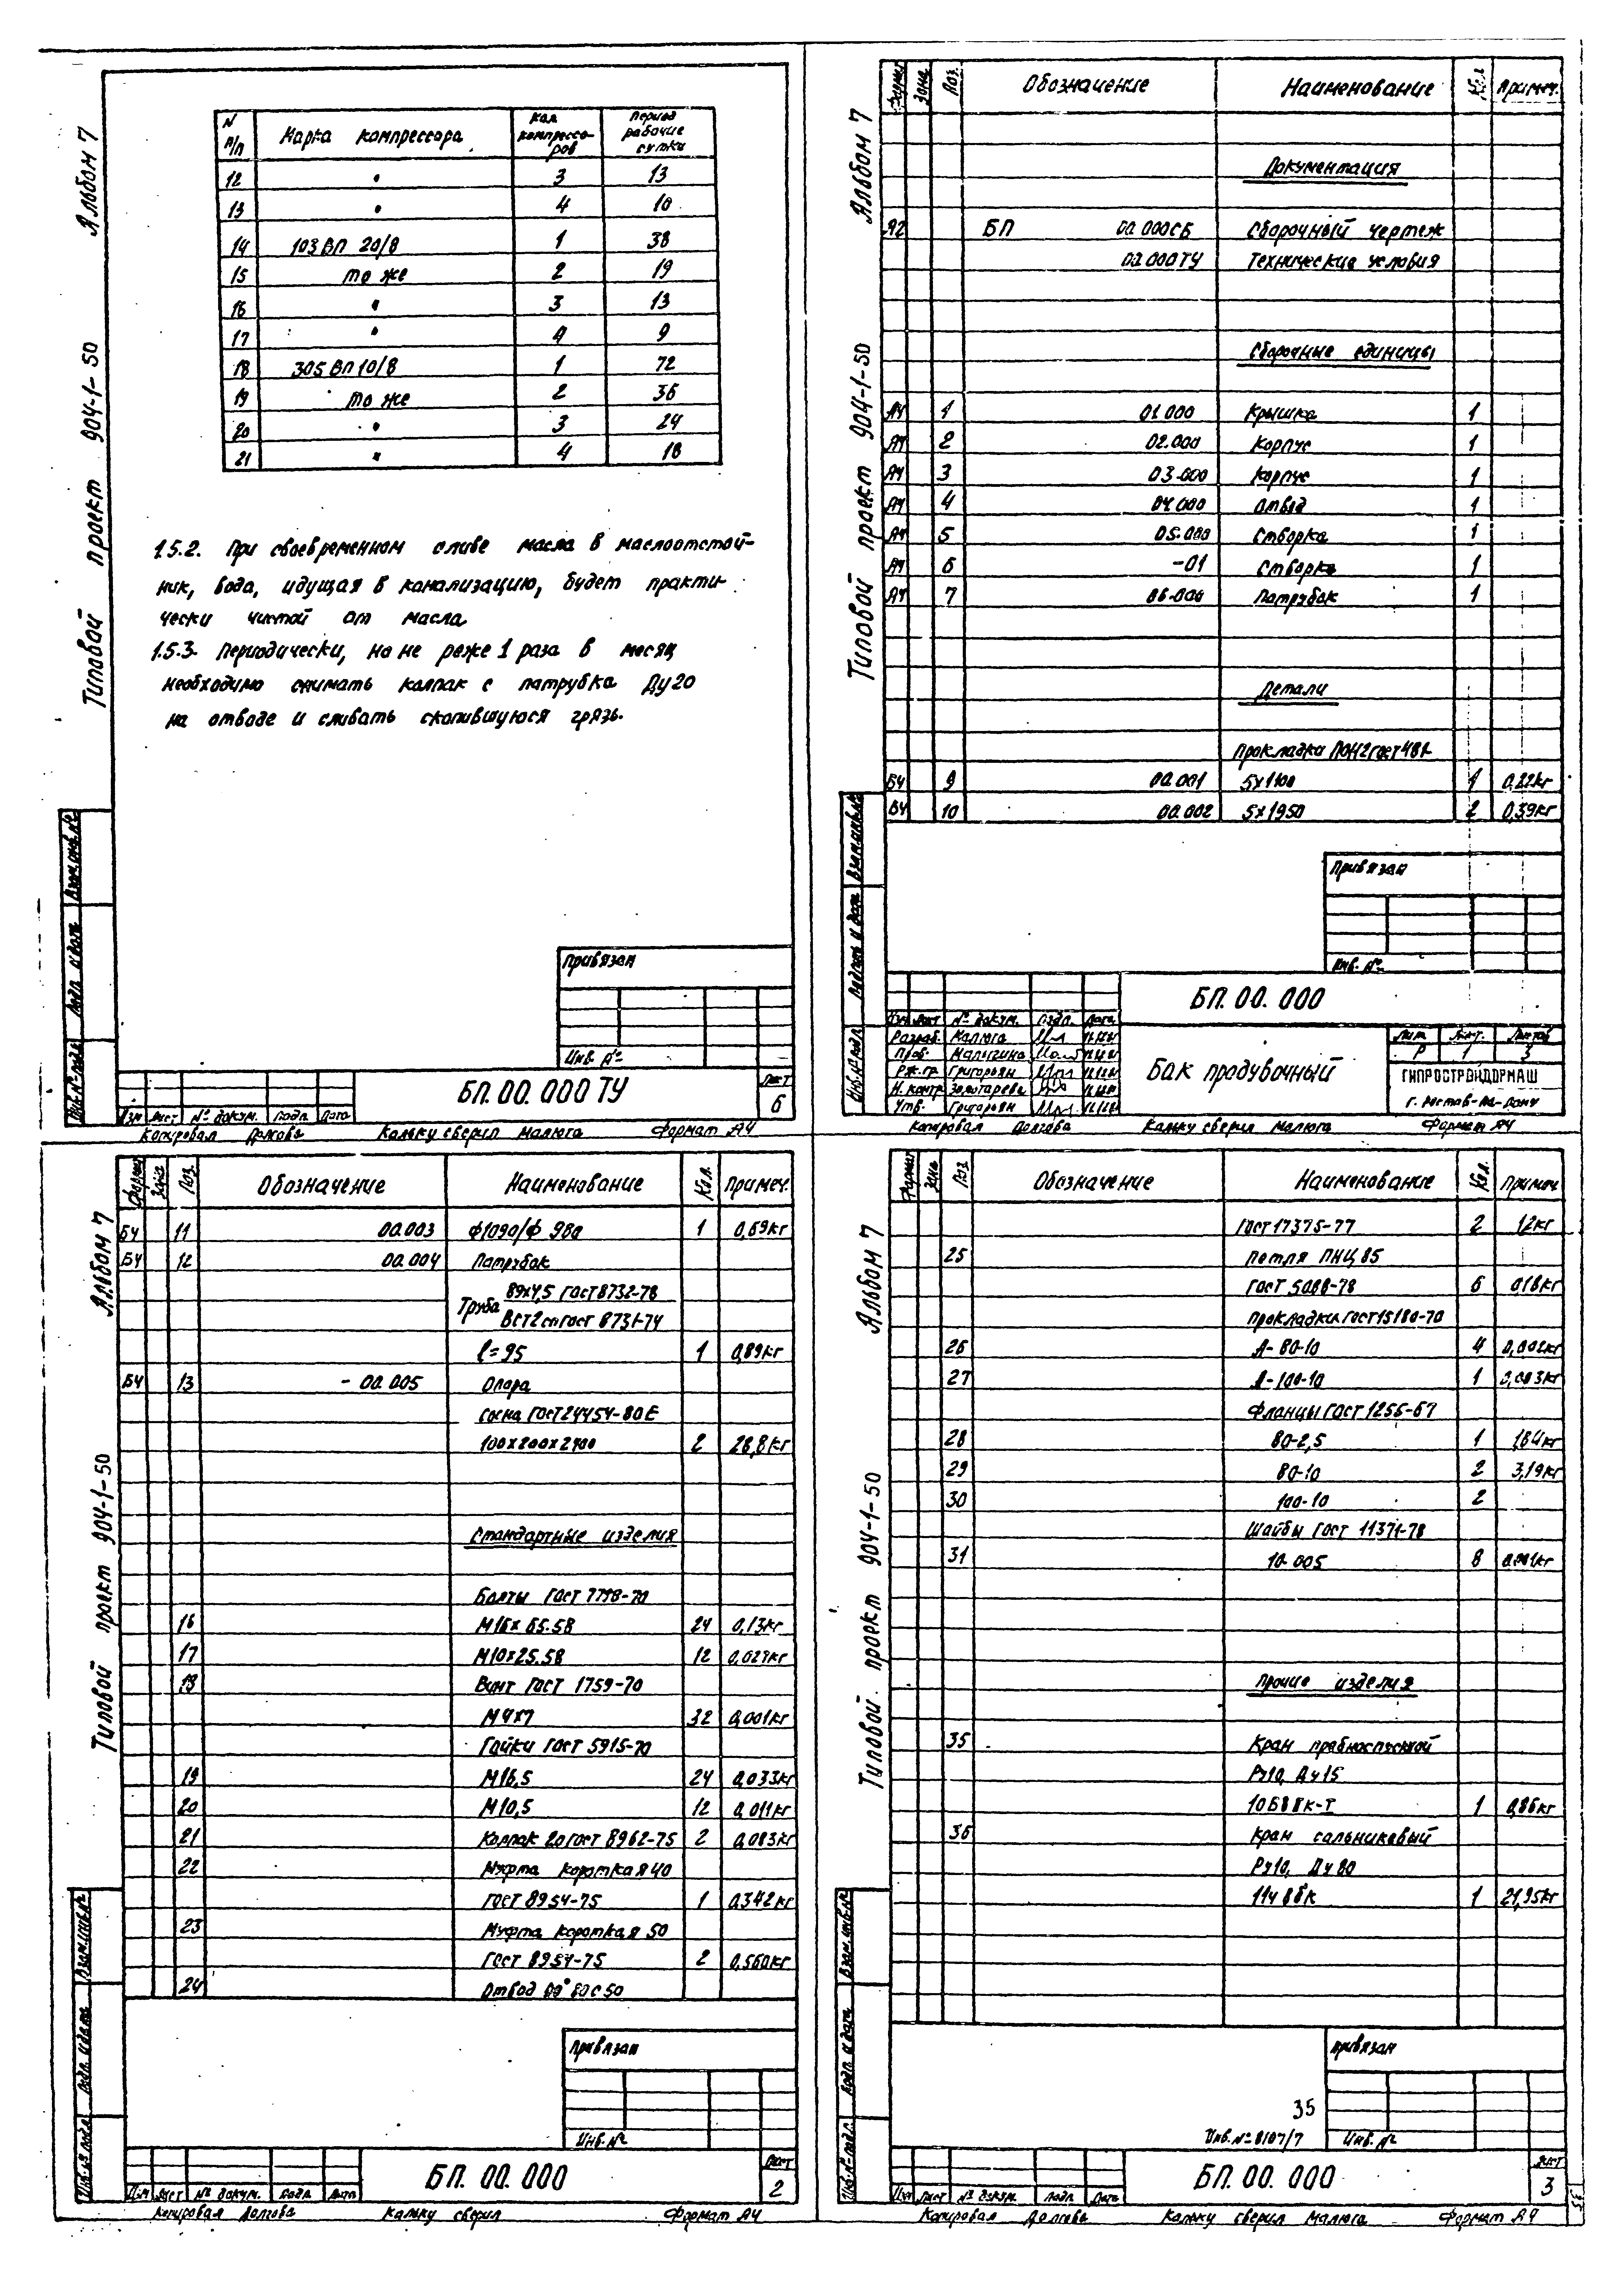 Альбом 7
Типовой проект 904-1-50
N п/п Марка компрессора Кол. компрессоров Период рабочие сутки
12 " 3 13
13 " 4 10
14 103 ВП 20/8 1 38
15 то же 2 19
16 " 3 13
17 " 4 9
18 305 ВП 10/8 1 72
19 то же 2 36
20 " 3 24
21 " 4 18
1.5.2. При своевременном сливе масла в маслоотстой-
ник, вода, идущая в канализацию, будет практи-
чески чистой от масла
1.5.3. Периодически, но не реже 1 раза в месяц
необходимо снимать колпак с патрубка Ду20
на отводе и сливать скопившуюся грязь.
Привязан
Инв. №
БП. 00. 000 ТУ
Лист
6
Изм Лист № докум. Подп. Дата
Инв. № подл. Подп. и дата Взам. инв. №
Копировал Долгова Кальку сверил Малюга Формат А4
Альбом 7
Типовой проект 904-1-50
Формат Зона Поз. Обозначение Наименование Кол. Примеч.
Документация
А2 БП 00.000СБ Сборочный чертеж
00.000ТУ Технические условия
Сборочные единицы
А4 1 01.000 Крышка 1
А4 2 02.000 Корпус 1
А4 3 03.000 Корпус 1
А4 4 04.000 Отвод 1
А4 5 05.000 Створка 1
А4 6 -01 Створка 1
А4 7 06.000 Патрубок 1
Детали
Прокладки ПОН2 ГОСТ 481-
БЧ 9 00.001 5х1100 1 0,22кг
БЧ 10 00.002 5х1950 2 0,39кг
Привязан
Инв. №
БП. 00. 000
Изм Лист № докум. Подп. Дата
Разраб. Малюга
Пров. Малыгина
Рук. гр. Григорьян
Н. контр. Золотарева
Утв. Григорьян
Бак продувочный
Лит. Лист. Листов
Р 1 3
ГИПРОСТРОЙДОРМАШ
г. Ростов-на-Дону
Инв. № подл. Подпись и дата Взам. инв. №
Копировал Долгова Кальку сверил Малюга Формат А4
Альбом 7
Типовой проект 904-1-50
Формат Зона Поз. Обозначение Наименование Кол. Примеч.
БЧ 11 00.003 Ф1090/Ф 980 1 0,69кг
БЧ 12 00.004 Патрубок
Труба 89х4,5 ГОСТ 8732-78
ВСт2сп ГОСТ 8731-74
l=95 1 0,89кг
БЧ 13 - 00.005 Опора
Сосна ГОСТ 24454-80Е
100х200х2400 2 28,8кг
Стандартные изделия
Болты ГОСТ 7798-70
16 М16х65.58 24 0,13кг
17 М10х25.58 12 0,027кг
18 Винт ГОСТ 1759-70
М4х7 32 0,001кг
Гайки ГОСТ 5915-70
19 М16,5 24 0,033кг
20 М10,5 12 0,011кг
21 Колпак 20 ГОСТ 8962-75 2 0,083кг
22 Муфта короткая 40
ГОСТ 8954-75 1 0,342кг
23 Муфта короткая 50
ГОСТ 8954-75 2 0,560кг
24 Отвод 90° 80 С 50
Привязан
Инв. №
БП. 00. 000
Лист
2
Изм Лист № докум. Подп. Дата
Инв. № подл. Подп. и дата Взам. инв. №
Копировал Долгова Кальку сверил Формат А4
Альбом 7
Типовой проект 904-1-50
Формат Зона Поз. Обозначение Наименование Кол. Примеч.
ГОСТ 17375-77 2 1,2кг
25 Петля ПНЦ 85
ГОСТ 5088-78 6 0,18кг
Прокладки ГОСТ 15180-70
26 А-80-10 4 0,002кг
27 А-100-10 1 0,003кг
Фланцы ГОСТ 1255-67
28 80-2,5 1 1,84кг
29 80-10 2 3,19кг
30 100-10 2
Шайбы ГОСТ 11371-78
31 10.005 8 0.001кг
Прочие изделия
35 Кран пробноспускной
Ру10, Ду15
10Б8Вк-Т 1 0,86кг
36 Кран сальниковый
Ру10, Ду80
11ч 8бк 1 21,95кг
Привязан
35
Инв. № 8107/7 Инв. №
БП. 00. 000
Лист
3
Изм Лист № докум. Подп. Дата
Инв. № подл. Подп. и дата Взам. инв. №
Копировал Долгова Кальку сверил Малюга Формат А4